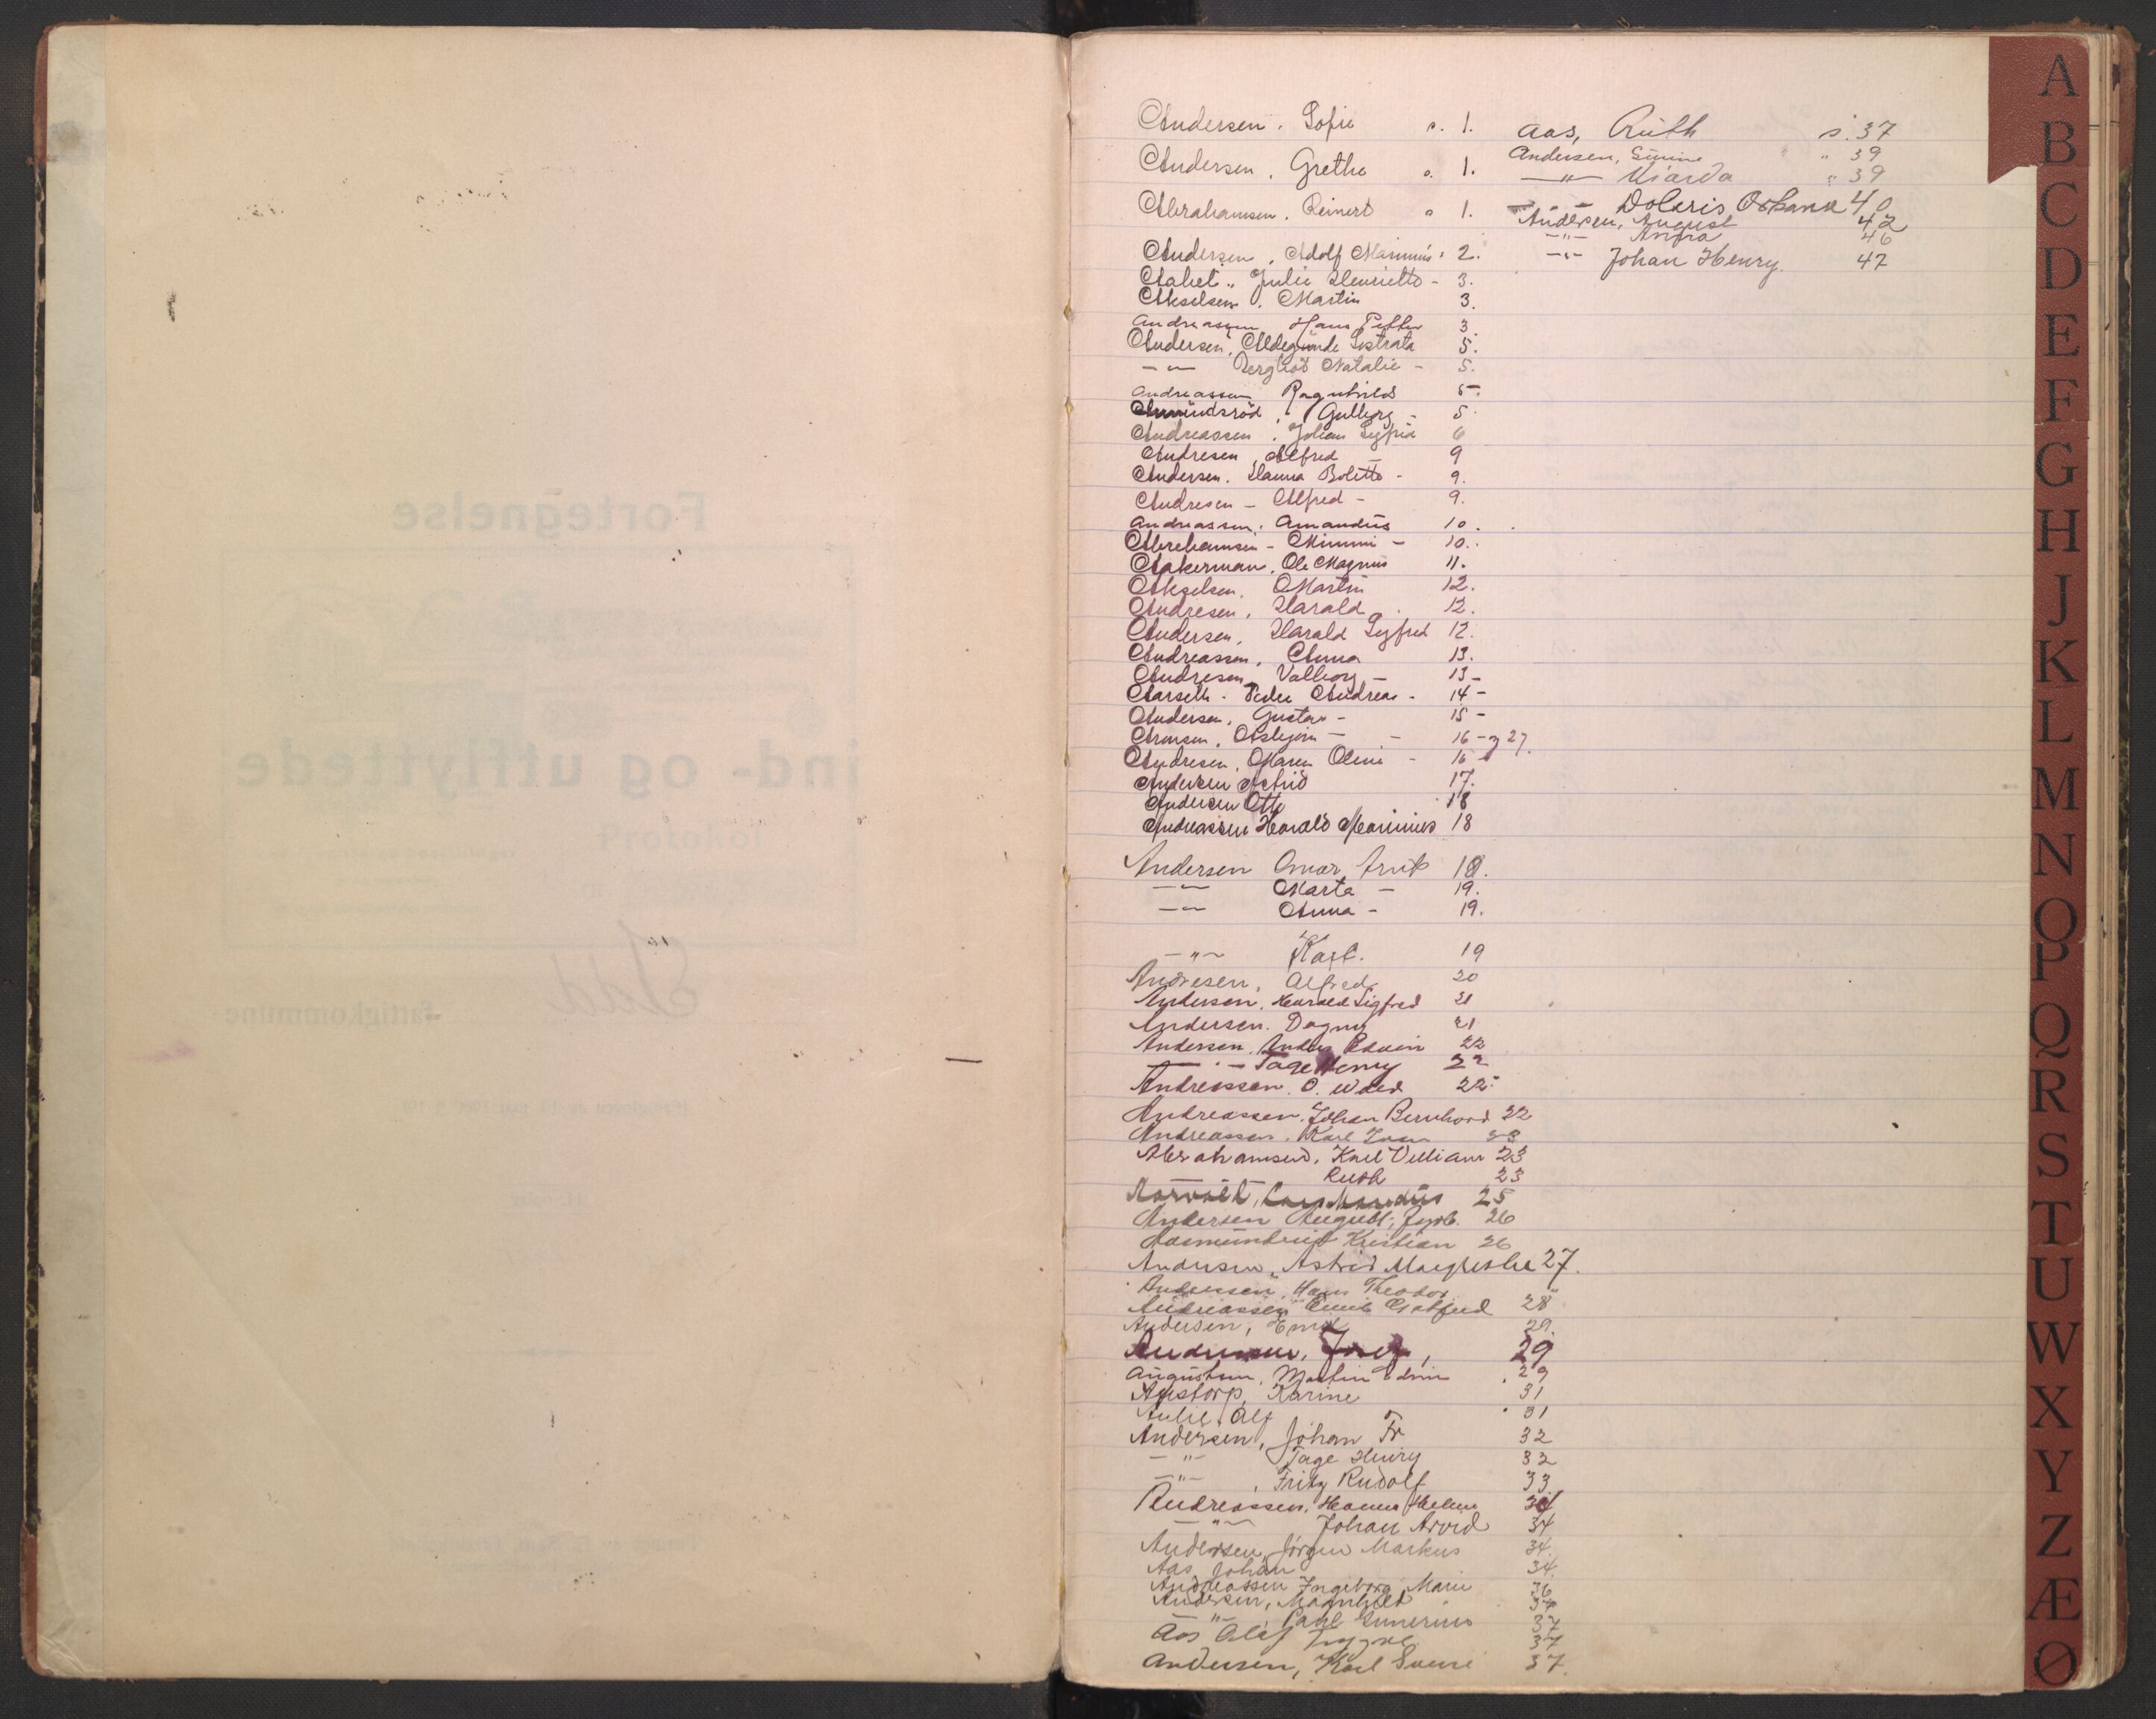 Andersen, Sofie s. 1.
Andersen, Grethe s. 1.
Abrahamsen, Reinert " 1.
Andersen, Adolf Marinius 2.
Julie Henriette - 3.
Akselsen, Martin 3.
Andreassen Hans Petter 3
Andersen, Aldegunde Sostrata 5.
-"- Bergliot Natalie - 5.
Andreassen Ragnhild 5.
Amundsröd, Gulborg - 5
Andreassen, Johan Sigfrid 6
Andresen, Alfred - 9
Andersen, Hanna Bolette - 9.
Andresen - Alfred - 9.
Andreassen, Amandus 10.
Abrehamsen - Mimmi - 10.
Aakerman, Ole Magnus 11.
Akselsen, Martin 12.
Andresen, Harald 12.
Andersen, Harald Sigfred 12.
Andreassen, Anna 13.
Andresen, Valborg - 13 -
Peder Andreas - 14 -
Andersen, Gustav - 15 -
Aronsen, Asbjørn - - 16 - og 27.
Andresen, Maren Oline - 16
Andersen Astrid 17.
Andersen Otto 18
Andreassen Harald Marinius 18
Andersen Omar Arnt 18.
-"- Marta - 19.
-"- Anna - 19.
-"- Karl. 19
Andresen, Alfred 20
Andersen, Harald Sigfred 21
Andersen. Dagny 21
Andersen, Anders Edwin 22
-"- Tage Henry 22
Andreassen. O. 22
Andreassen, Johan Bernhard 22
Andreassen, Karl Johan 23
Abrahamsen, Karl William 23
Ruth 23
25
Andersen August, 26
Kristian 26
Andersen, Astrid Margrethe 27.
Andreassen, Hans Theodor
Andreassen Emil Gotfred 28
Andersen, Emil 29.
Andersen, 29
Augustsen, Martin Edvin 29
Aastorp, Karine 31
Aulie, Alf 31
Andersen, Johan Fr 32
-"- Tage Henry 32
-"- , Fritz Rudolf 33
Andreassen, Hanna Helene 34
-"- Johan Arvid 34
Andersen, Jörgen Markus 34.
Aas, Johan 34.
Andreassen Ingeborg Marie 36
Andersen, Magnhild 37
-"- , Carl 37
Aas Olaf Trygve 37
Andersen, Karl Sverre 37.
Aas, Ruth s. 37
Andersen, " 39
-"- " 39
-"- Doloris Oskara 40
Andersen, August 42
-"- 46
-"- Johan Henry. 47
A
B
C
D
E
F
G
H
J
K
L
M
N
O
P
Q
R
S
T
U
W
X
Y
Z
Æ
Ø
Fortegnelse
ind- og utflyttede
Protokol
Idd
fattigkommune